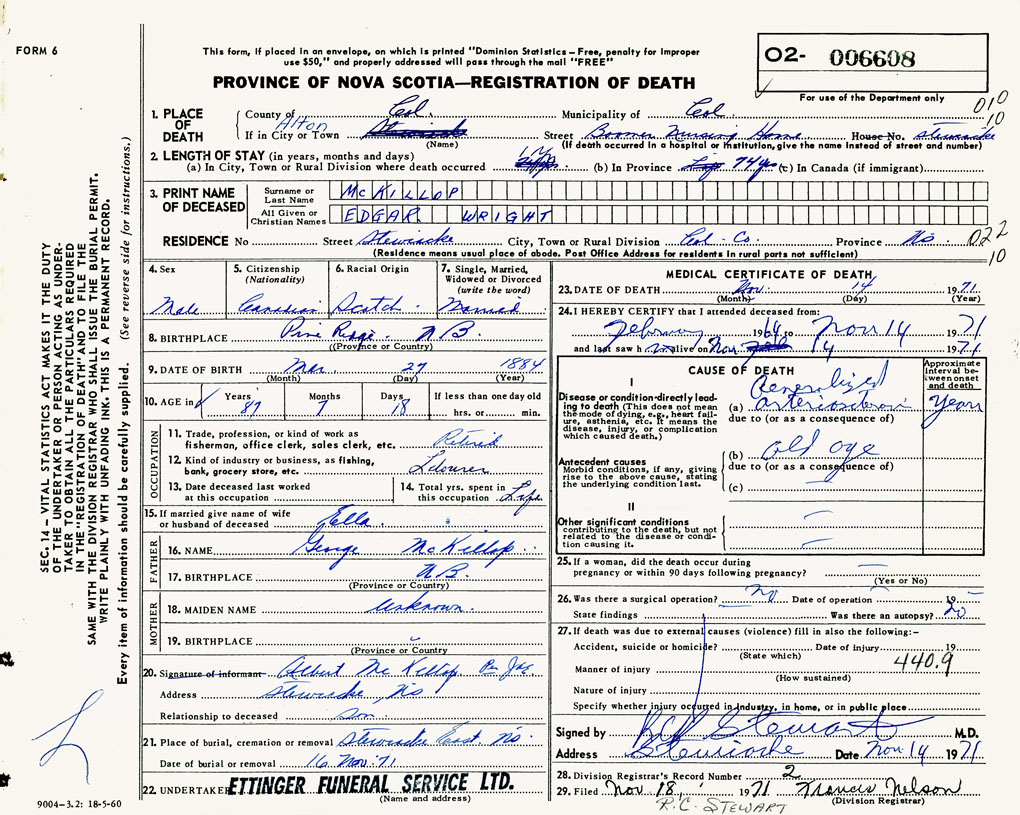 FORM 6
This form, if placed in an envelope, on which is printed "Dominion Statistics – Free, penalty for improper
use $50," and properly addressed will pass through the mail "FREE"
PROVINCE OF NOVA SCOTIA—REGISTRATION OF DEATH
O2- 006608
For use of the Department only
010
10
1. PLACE OF DEATH
County of Col. Municipality of Col.
Alton
If in City or Town Stewiacke Street Boomer Nursing Home House No. Stewiacke
(Name) (If death occurred in a hospital or institution, give the name instead of street and number)
2. LENGTH OF STAY (in years, months and days)
(a) In City, Town or Rural Division where death occurred (b) In Province Life 74 yrs (c) In Canada (if immigrant)
3. PRINT NAME OF DECEASED
Surname or Last Name McKILLOP
All Given or Christian Names EDGAR WRIGHT
RESIDENCE No Street Stewiacke City, Town or Rural Division Col. Co. Province N.S. 022
(Residence means usual place of abode. Post Office Address for residents in rural parts not sufficient) 10
4. Sex
Male
5. Citizenship (Nationality)
Canadian
6. Racial Origin
Scotch
7. Single, Married, Widowed or Divorced (write the word)
Married
8. BIRTHPLACE Pine Ridge N B.
(Province or Country)
9. DATE OF BIRTH Mar 27 1884
(Month) (Day) (Year)
10. AGE in Years 87 Months 7 Days 18 If less than one day old hrs. or min.
OCCUPATION
11. Trade, profession, or kind of work as fisherman, office clerk, sales clerk, etc. Retired
12. Kind of industry or business, as fishing, bank, grocery store, etc. Labourer
13. Date deceased last worked at this occupation
14. Total yrs. spent in this occupation Life
15. If married give name of wife or husband of deceased Ella
FATHER
16. NAME George McKillop
17. BIRTHPLACE N B.
(Province or Country)
MOTHER
18. MAIDEN NAME Unknown.
19. BIRTHPLACE –
(Province or Country)
20. Signature of informant Albert McKillop Per
Address Stewiacke, NS
Relationship to deceased Son
21. Place of burial, cremation or removal Stewiacke East. N.S.
Date of burial or removal 16 Nov. '71
22. UNDERTAKER ETTINGER FUNERAL SERVICE LTD.
(Name and address)
MEDICAL CERTIFICATE OF DEATH
23. DATE OF DEATH Nov. 14 1971
(Month) (Day) (Year)
24. I HEREBY CERTIFY that I attended deceased from
February 1964 to Nov 14 1971
and last saw him alive on Nov 14 1971
CAUSE OF DEATH
Approximate interval between onset and death
I
Disease or condition directly leading to death (This does not mean the mode of dying, e.g., heart failure, asthenia, etc. It means the disease, injury, or complication which caused death.)
(a) Generalized
Years
due to (or as a consequence of)
Antecedent causes
Morbid conditions, if any, giving rise to the above cause, stating the underlying condition last.
(b) old age
due to (or as a consequence of)
(c) –
II
Other significant conditions contributing to the death, but not related to the disease or condition causing it.
25. If a woman, did the death occur during pregnancy or within 90 days following pregnancy? –
(Yes or No)
26. Was there a surgical operation? no Date of operation – 19 –
State findings Was there an autopsy? no
27. If death was due to external causes (violence) fill in also the following:–
Accident, suicide or homicide? Date of injury 19
(State which)
Manner of injury 440.9
(How sustained)
Nature of injury
Specify whether injury occurred in Industry, in home, or in public place
Signed by Stewart M.D.
Address Stewiacke Date Nov. 14 1971
28. Division Registrar's Record Number 2
29. Filed Nov. 18, 1971 Francis Nelson
(Division Registrar)
R.C. STEWART
9004-3.2: 18-5-60
SEC. 14 – VITAL STATISTICS ACT MAKES IT THE DUTY
OF THE UNDERTAKER OR PERSON ACTING AS UNDER-
TAKER TO OBTAIN ALL THE PARTICULARS REQUIRED
IN THE "REGISTRATION OF DEATH" AND TO FILE THE
SAME WITH THE DIVISION REGISTRAR WHO SHALL ISSUE THE BURIAL PERMIT.
WRITE PLAINLY WITH UNFADING INK. THIS IS A PERMANENT RECORD.
Every item of information should be carefully supplied. (See reverse side for instructions.)